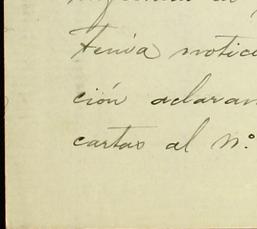 tenía notici
ción aclaran
cartas al nº